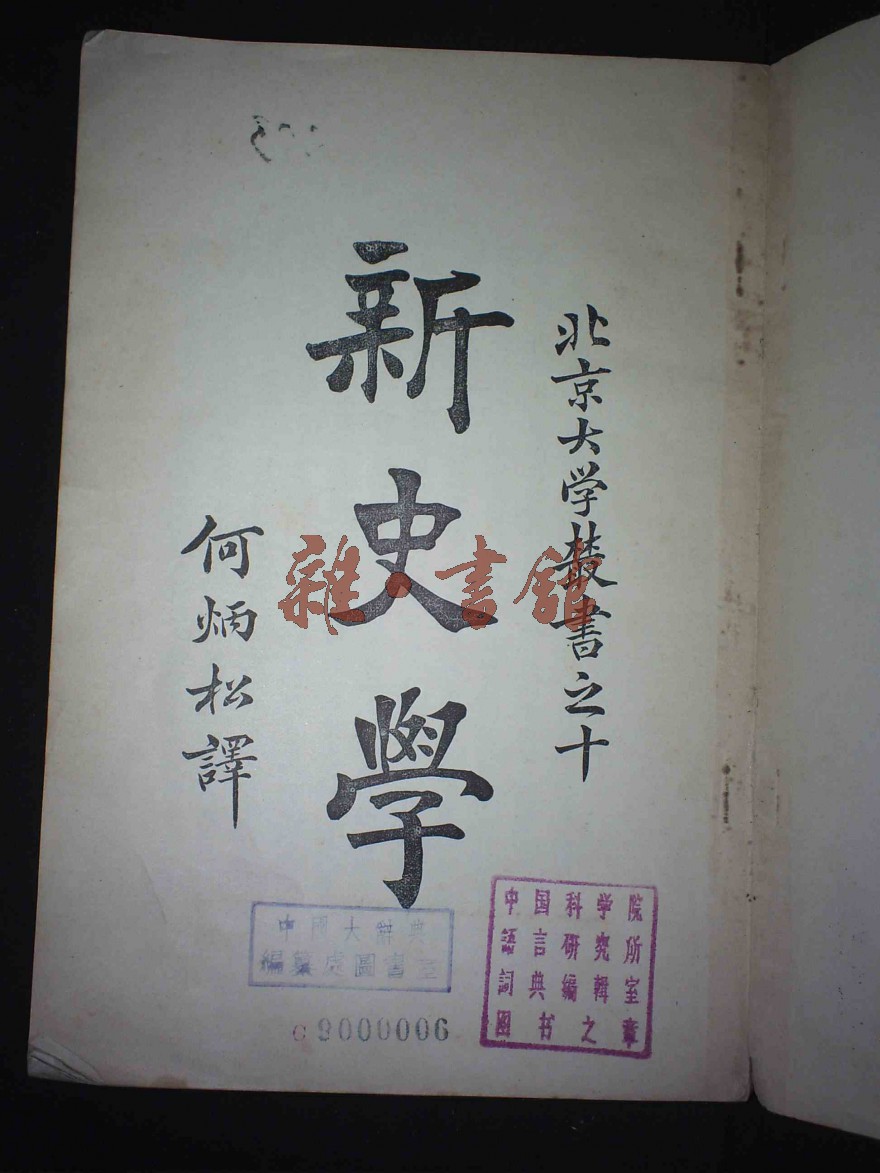 北京大学叢書之十
新史學
何炳松譯
雜·書舘
中國大辭典
編纂處圖書室
中国科学院
語言研究所
詞典編輯室
图书之章
C 9000006